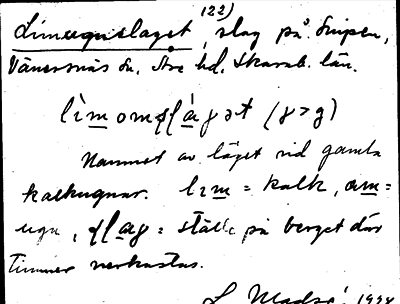 122)
Limugnslaget, slag på Snipen,
Vänersnäs sn, Åse hd. Skarab. län.
lìmomsflàgət (g > g)
Namnet av läget vid gamla
kalkugnar. lim = kalk, om =
ugn, flag = ställe på berget där
timmer nerkastas.